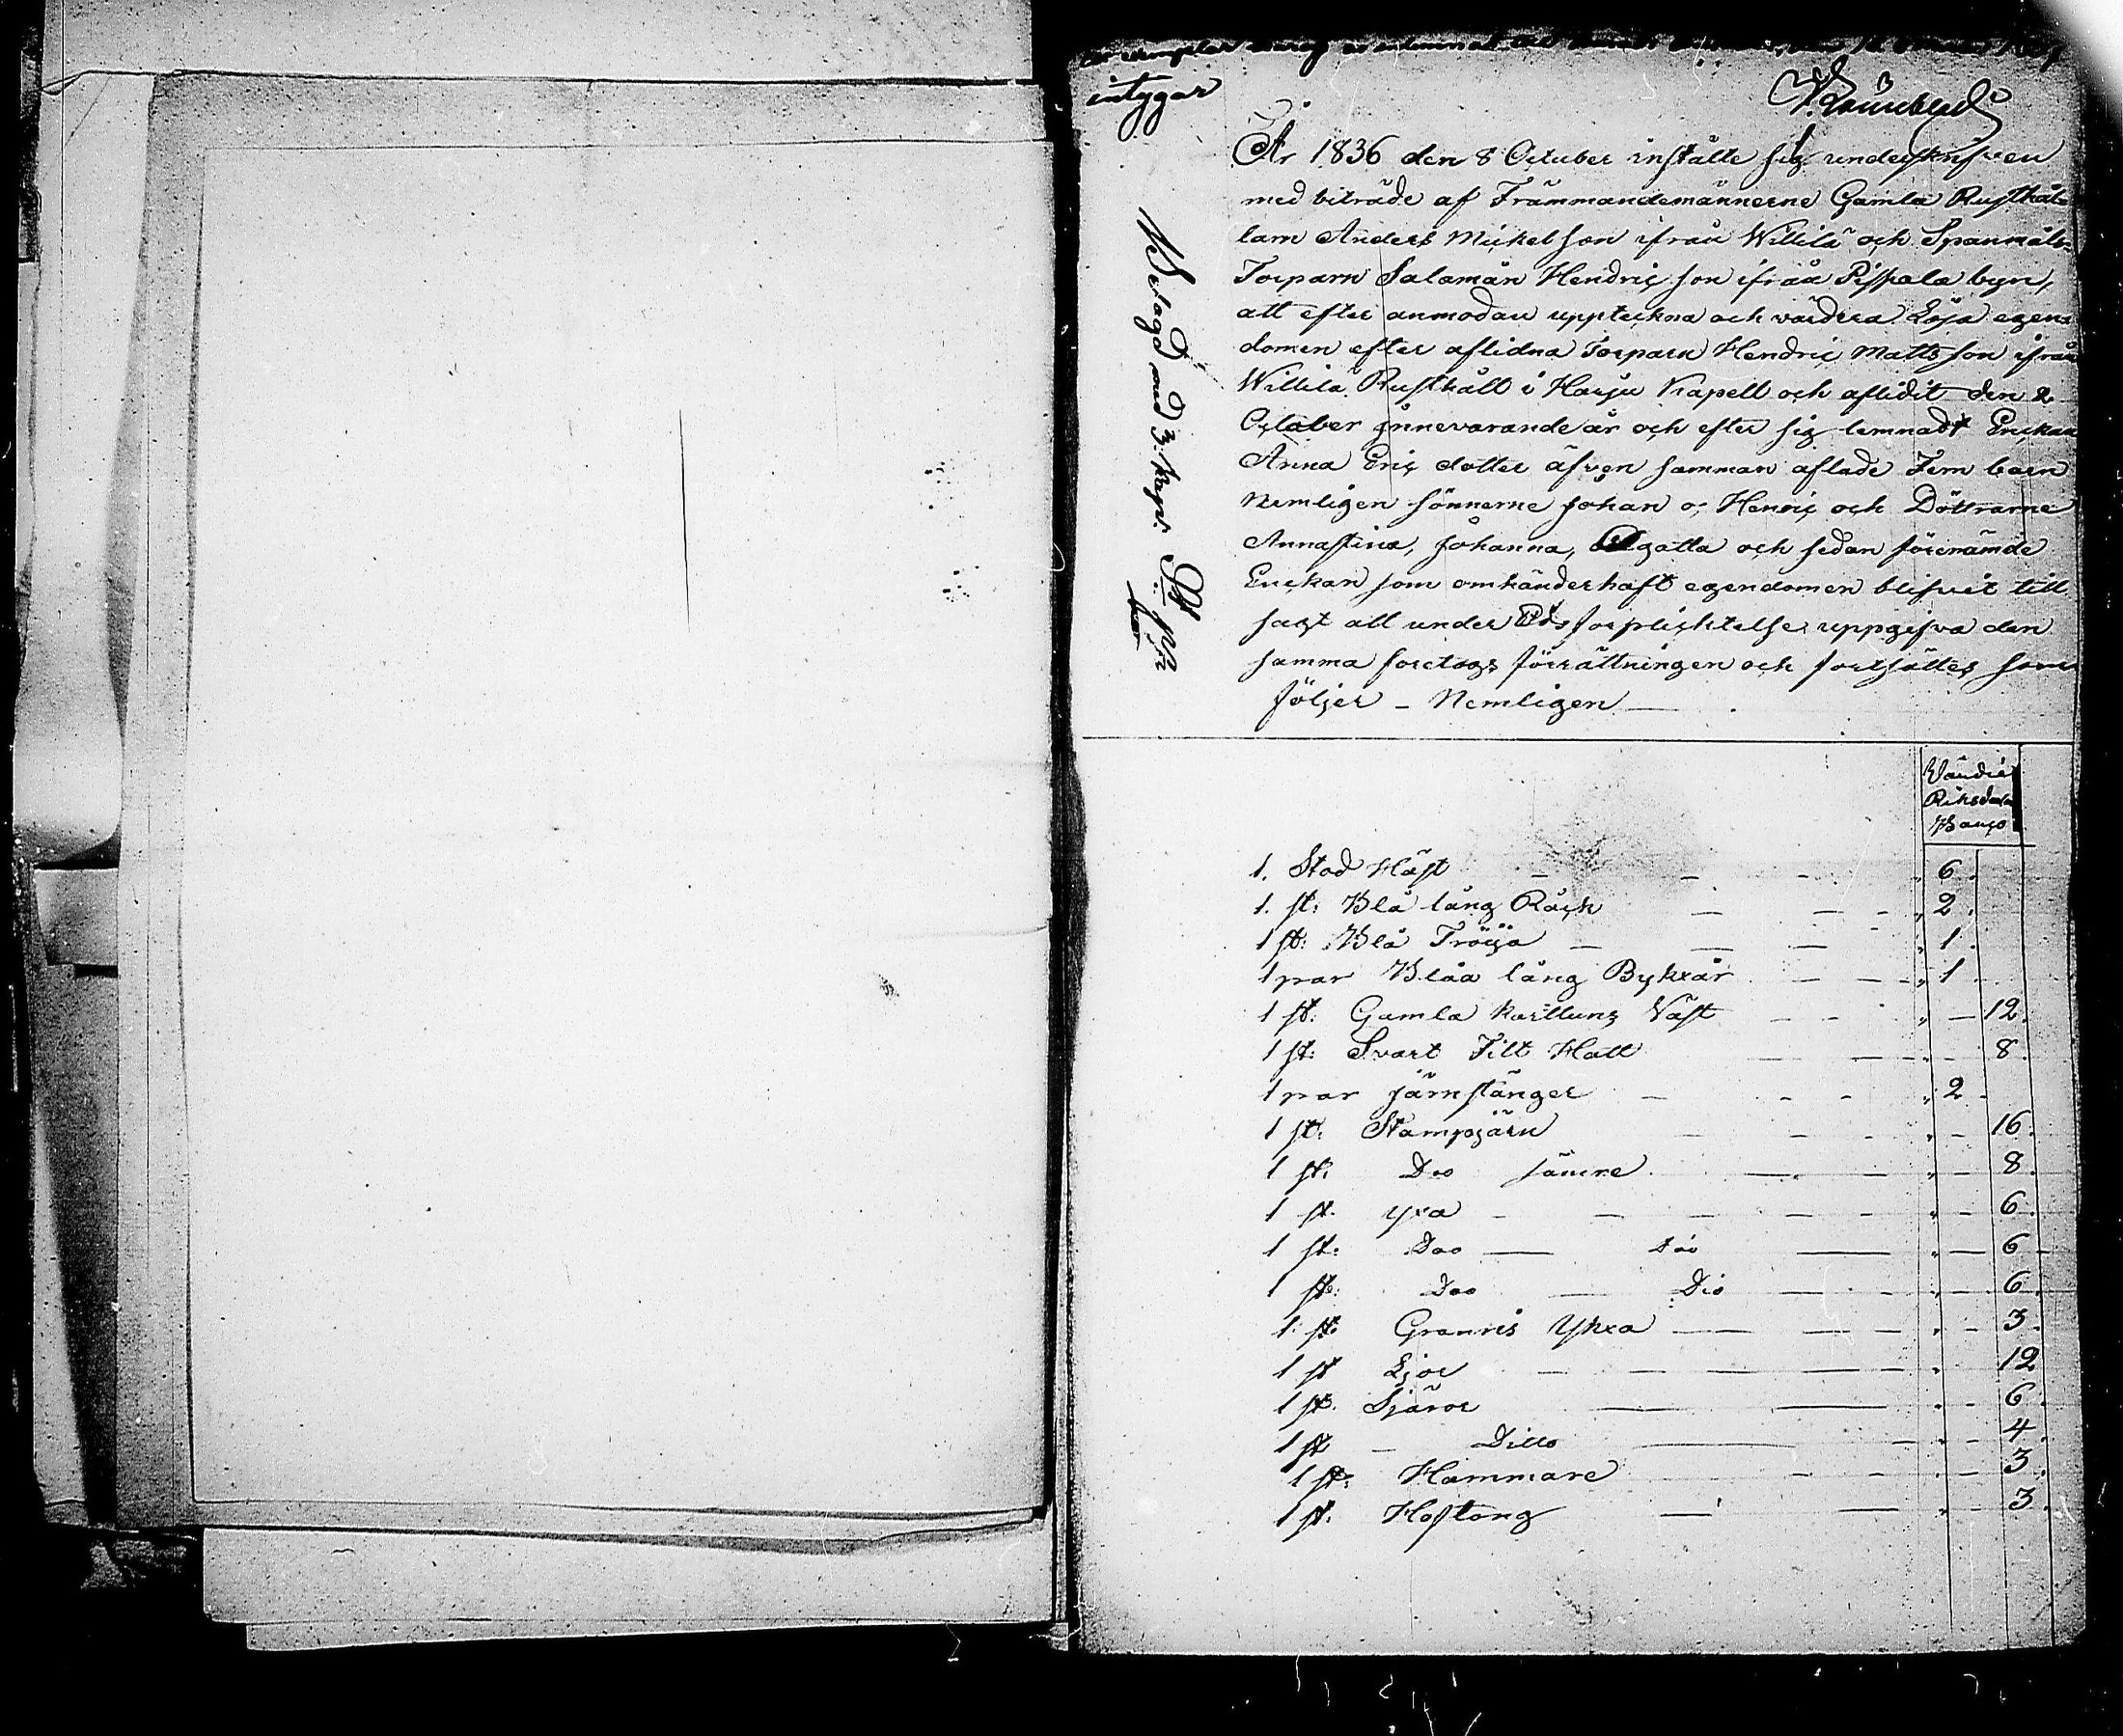 intygar
År 1836 den 8 October instälte sig underskrifven
med biträde af Främmandemännerne Gamla Rusthål-
larn Anders Mickelson ifrån Willilä och Spanmåls-
Torparn Salamän Hendricson ifrån Pispala byn,
att efter anmodan uppteckna och värdera Lösa egen-
domen efter aflidna Torparn Hendric Mattsson ifrån
Willilä Rusthåll i Harju Kapell och aflidit den 2
October innevarande år och efter sig lemnadt Enckan
Anna Eric dotter äfven samman aflade Fem barn
Nemligen sönnerne Johan o, Henric och Döttrarne
Annastina, Johanna, Agatta och sedan förenämde
Enckan som omhänderhaft egendomen blifvit till
sagt all under Eds förplicktelse uppgifva den
samma foretogs förrättningen och fortsättes som
följer - Nemligen
Belagd med 3. kop:
Riksdaler
Banco
1. Stod Häst - - - " 6.
1. st: Blå lång Råck - - - " 2.
1 st: Blå Tröija - - - " 1.
1 par Blåa lång Bykxår - - - " 1
1 st: Gamla kattuns Väst - - " - 12.
1 st: Svart Filt Hatt - - - " - 8.
1 par järnstänger - - - " 2 -
1 st: Stampjärn - - - " - 16.
1 st: Do sämre - - " - 8.
1 st. yxa - - - - - " - 6.
1 st: Doo - Doo - " - 6 -
1 st: Doo - Dio - - " - 6.
1 st: Granris Ykxa - - - " - 3.
1 st Ljor - - - - " - 12
1 st. Sjäror - - - " - 6.
1 st - Ditto - - " - 4.
1 st: Hammare - - - " - 3.
1 st: Hoftong - - " - 3.